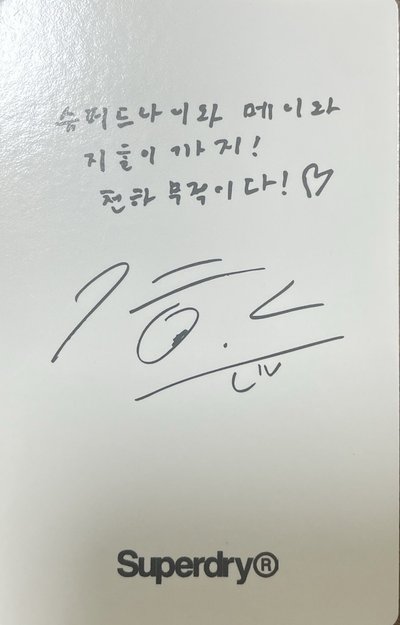 슈퍼드라이와 메이와
지훈이 까지!
천하 무적이다! ♡
Superdry®